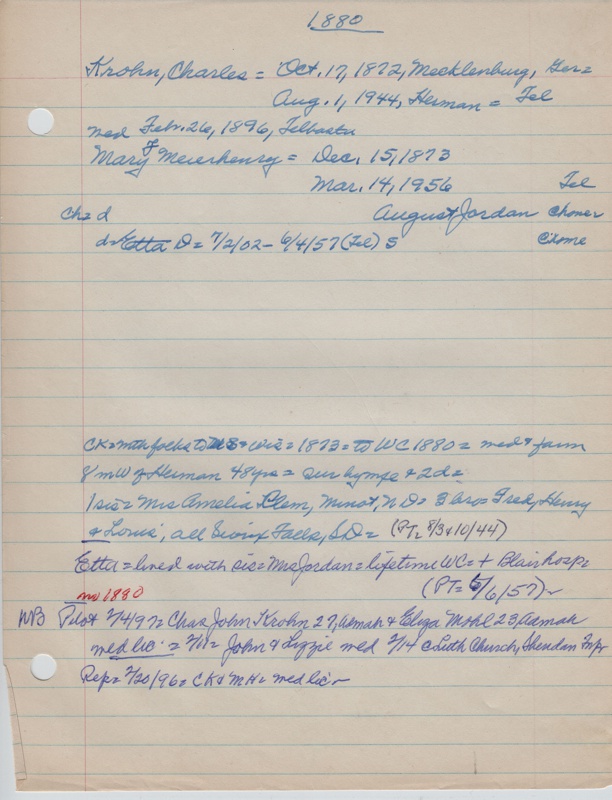 1880
Krohn, Charles = Oct. 17, 1872, Mecklenburg, Ger =
Aug. 1, 1944, Herman = Tel
med Feb. 26, 1896, Telbasta
Mary F Meierhenry = Dec. 15, 1873
Mar. 14, 1956 Tel
Ch = d August Jordan
d = Etta D = 7/2/02 - 6/4/57 (Tel) S
CK = with folks to US + Wis = 1873 = to WC 1880 = med + farm
8 m W of Herman 48 yrs = sur by mpe + 2d =
1 sis = Mrs Amelia Plem, Minot, ND = 3 bro = Fred, Henry
+ Louis, all Sioux Falls, SD = (PT = 8/3 + 10/44)
Etta = lived with sis = Mrs Jordan = lifetime WC = + Blair hosp =
no 1880 (PT = 6/6/57) ~
NB Pilot 2/4/97 = Chas John Krohn 27, Mohl 23,
med lic = 2/18 = John + Lizzie med 2/14 c Luth Church, Sheridan Twp
Rep = 2/20/96 = CK + MH = med lic ~